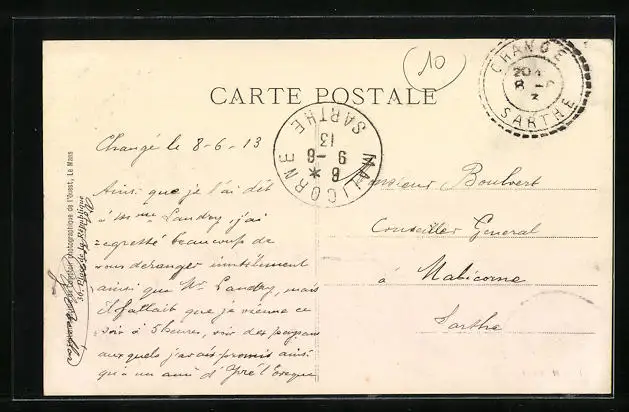 10
CHANGÉ
SARTHE
CARTE POSTALE
MALICORNE
SARTHE
6
9-6
13
Changé le 8-6-13
Ainsi que je l'ai dit
à Mme Landry, j'ai
regretté beaucoup de
vous déranger inutilement
ainsi que Mr Landry, mais
il fallait que je vienne ce
soir à 5 heures, voir des paysans
auxquels j'avais promis ainsi
qu'à un ami d'Yvré l'Evêque
Monsieur Boulvert
Conseiller General
à Malicorne
Sarthe
Photographique de l'Ouest, Le Mans